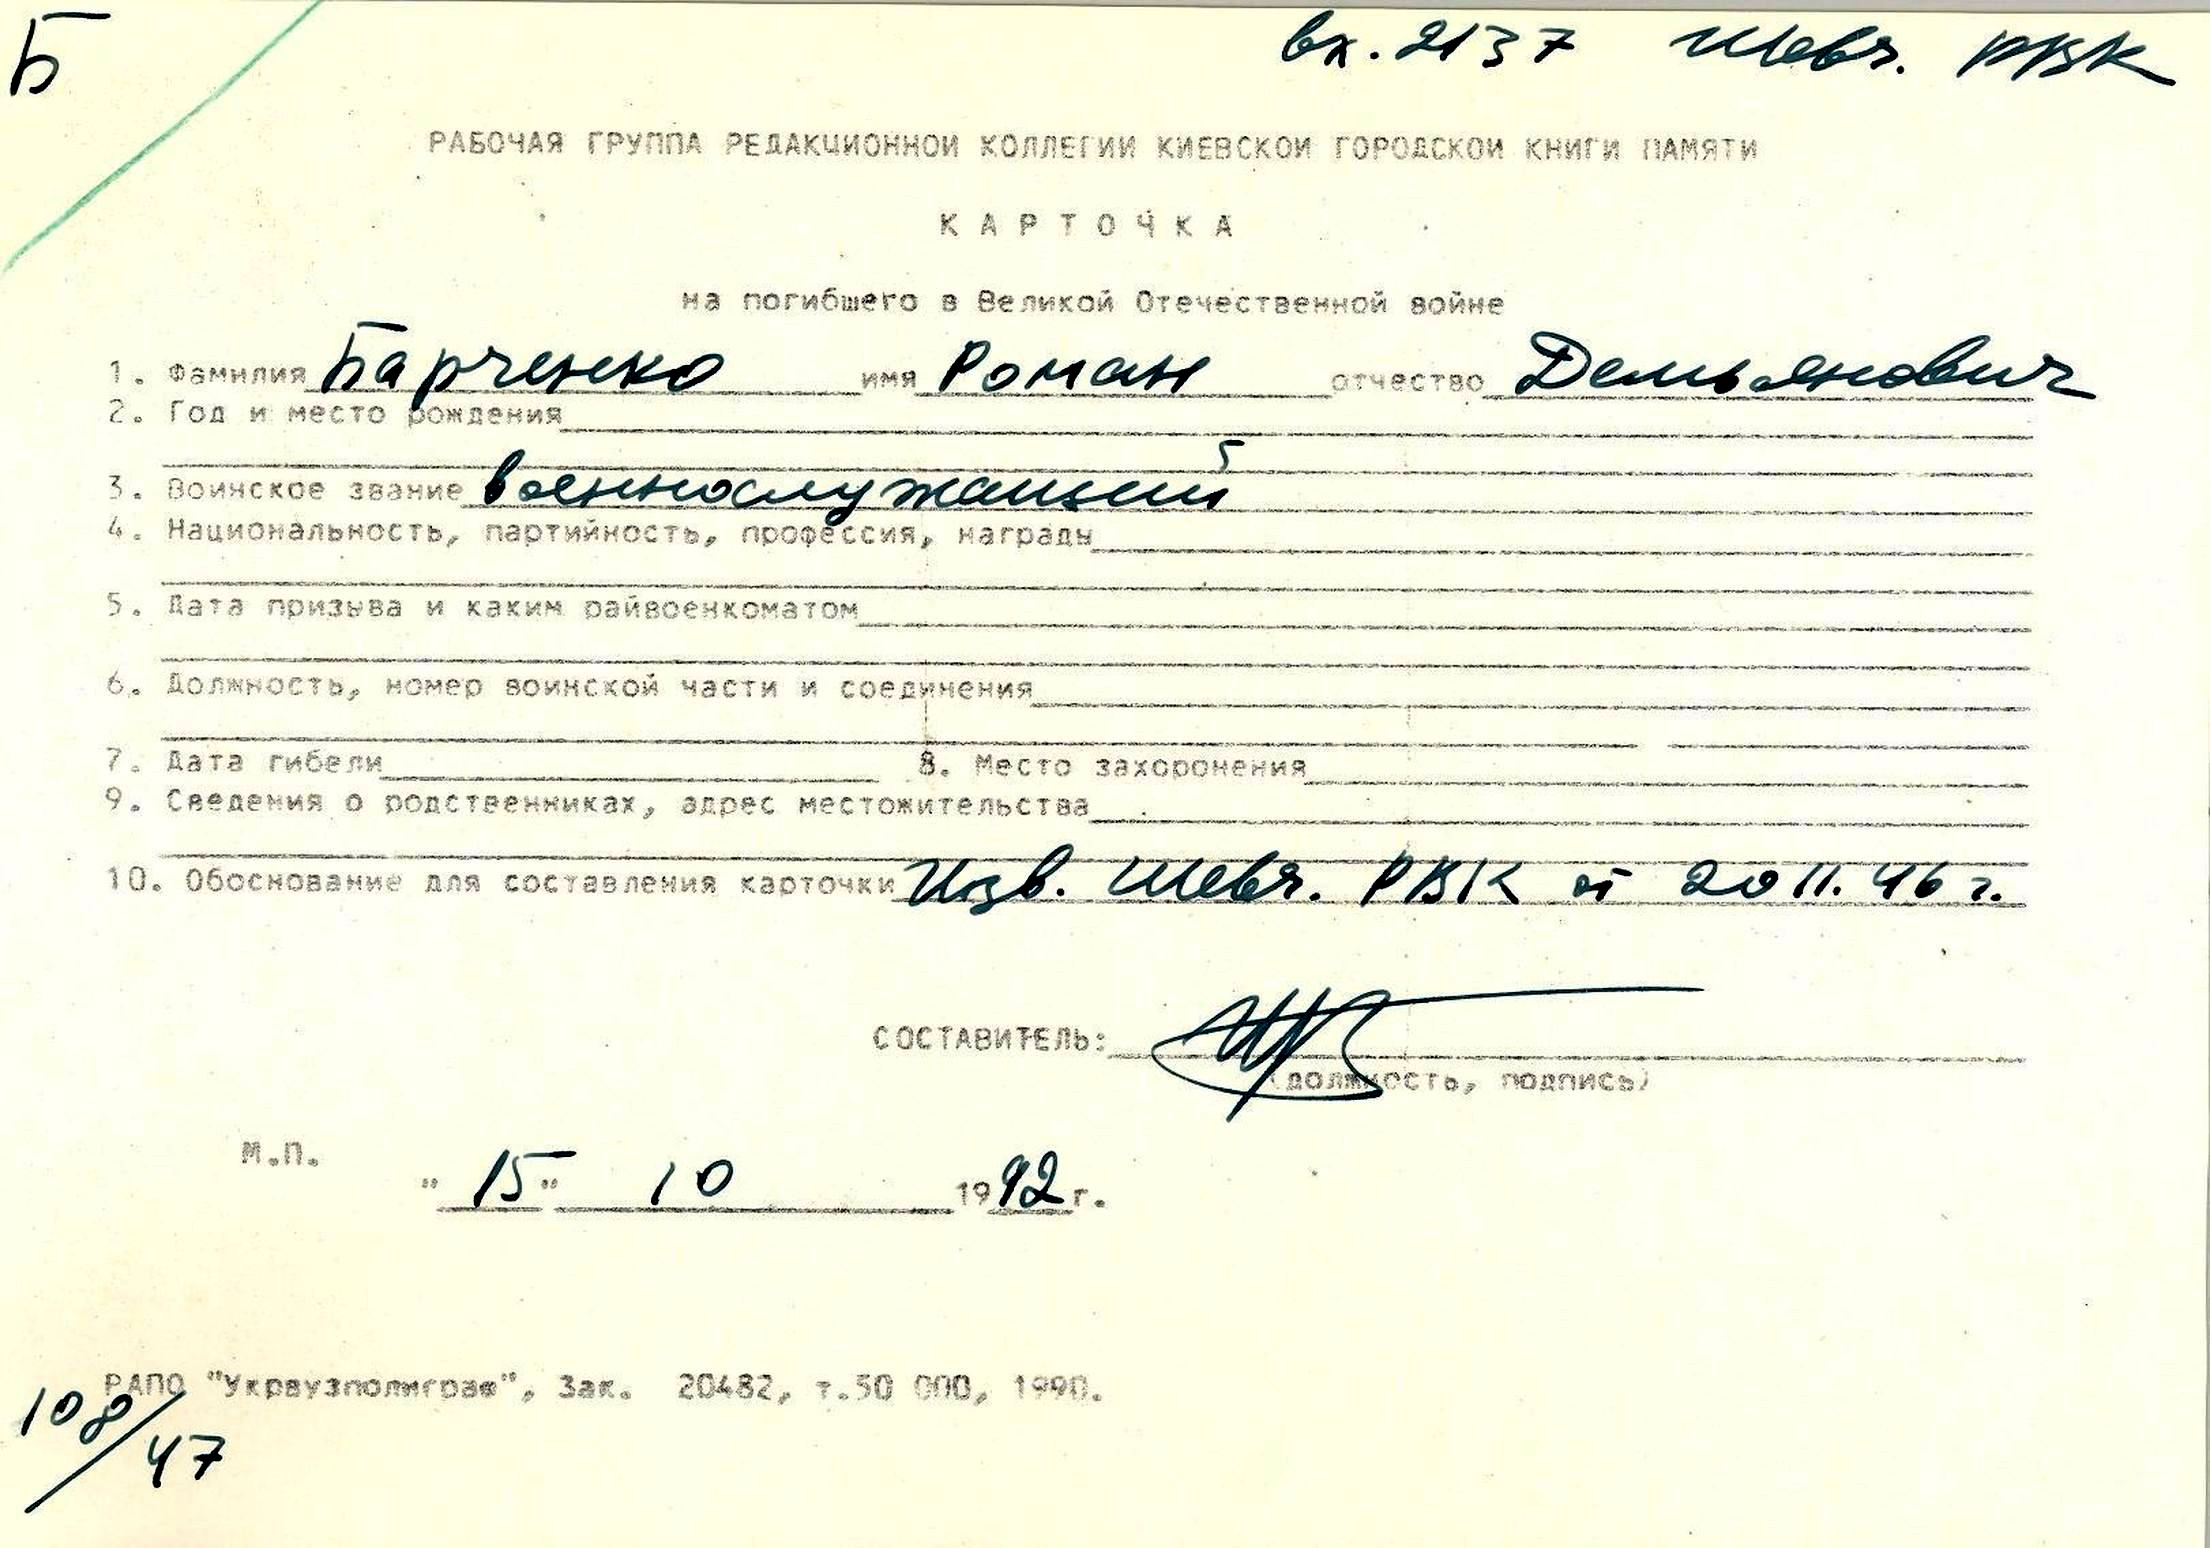 Б
вх. 2137 Шевч. РВК
РАБОЧАЯ ГРУППА РЕДАКЦИОННОЙ КОЛЛЕГИИ КИЕВСКОЙ ГОРОДСКОЙ КНИГИ ПАМЯТИ
КАРТОЧКА
на погибшего в Великой Отечественной войне
1. Фамилия Барченко имя Роман отчество Демьянович
2. Год и место рождения
3. Воинское звание военнослужащий
4. Национальность, партийность, профессия, награды
5. Дата призыва и каким райвоенкоматом
6. Должность, номер воинской части и соединения
7. Дата гибели 8. Место захоронения
9. Сведения о родственниках, адрес местожительства
10. Обоснование для составления карточки Изв. Шевч. РВК от 20 11. 46 г.
СОСТАВИТЕЛЬ:
(должность, подпись)
М.П.
"15" 10 1992 г.
РАПО "Укрвузполиграф", Зак. 20482, т.50 000, 1990.
108/47